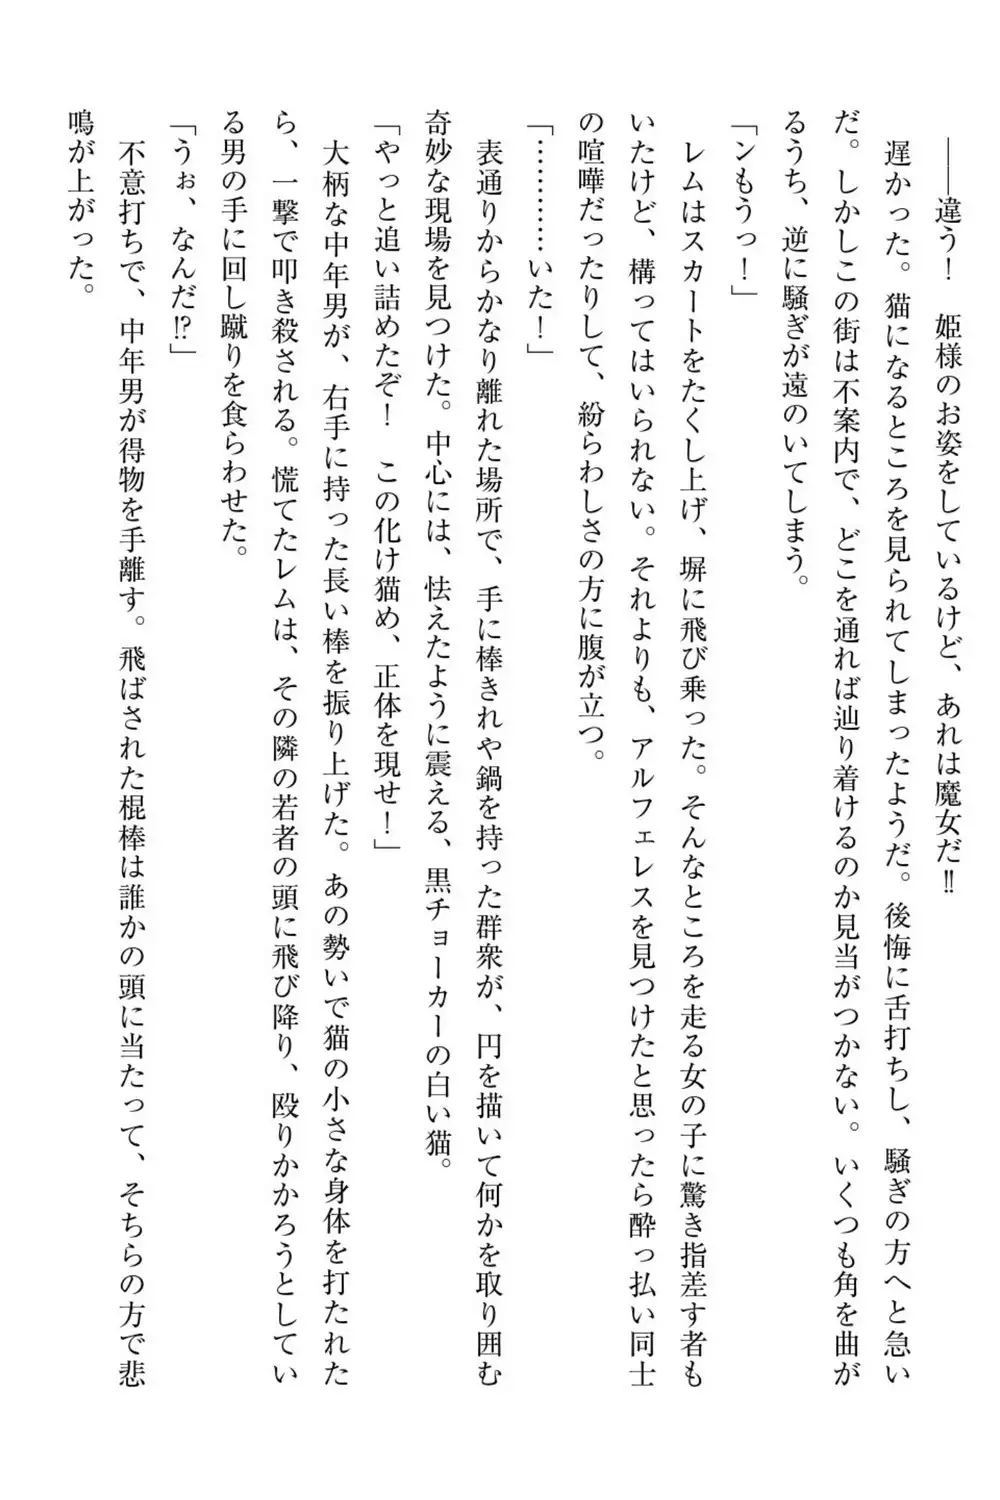 ――違う！　姫様のお姿をしているけど、あれは魔女だ‼
　遅かった。猫になるところを見られてしまったようだ。後悔に舌打ちし、騒ぎの方へと急い
だ。しかしこの街は不案内で、どこを通れば辿り着けるのか見当がつかない。いくつも角を曲が
るうち、逆に騒ぎが遠のいてしまう。
「ンもうっ！」
　レムはスカートをたくし上げ、塀に飛び乗った。そんなところを走る女の子に驚き指差す者も
いたけど、構ってはいられない。それよりも、アルフェレスを見つけたと思ったら酔っ払い同士
の喧嘩だったりして、紛らわしさの方に腹が立つ。
「…………いた！」
　表通りからかなり離れた場所で、手に棒きれや鍋を持った群衆が、円を描いて何かを取り囲む
奇妙な現場を見つけた。中心には、怯えたように震える、黒チョーカーの白い猫。
「やっと追い詰めたぞ！　この化け猫め、正体を現せ！」
　大柄な中年男が、右手に持った長い棒を振り上げた。あの勢いで猫の小さな身体を打たれた
ら、一撃で叩き殺される。慌てたレムは、その隣の若者の頭に飛び降り、殴りかかろうとしてい
る男の手に回し蹴りを食らわせた。
「うぉ、なんだ⁉」
　不意打ちで、中年男が得物を手離す。飛ばされた棍棒は誰かの頭に当たって、そちらの方で悲
鳴が上がった。